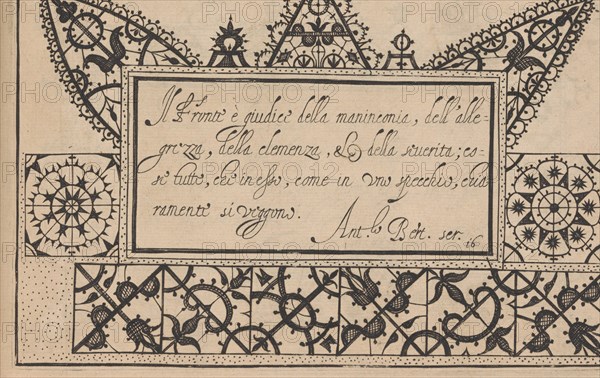 Il Fronte è giudice della maninconia, dell'alle-
grezza, della clemenza, & della seuerita; co-
se tutte, che in esso, come in uno specchio, chia-
ramente si ueggono.
Ant.º Bert. ser. 16